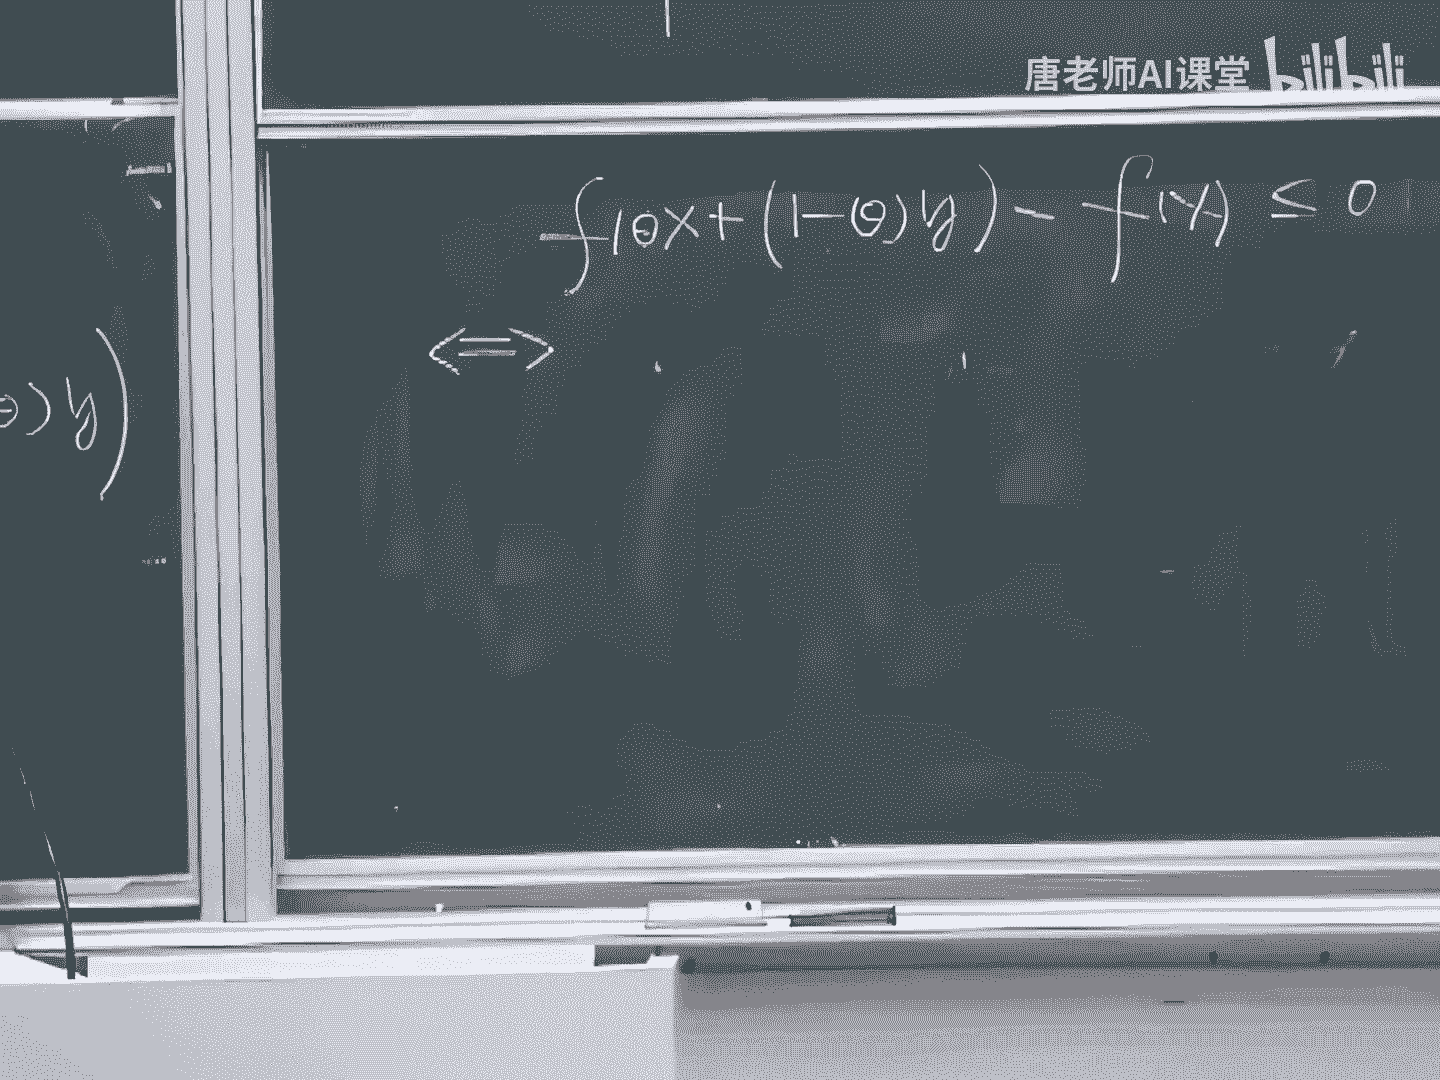 唐老师AI课堂 bilibili
f(θx+(1-θ)y) - f(x) ≤ 0
⟺
θ)y)